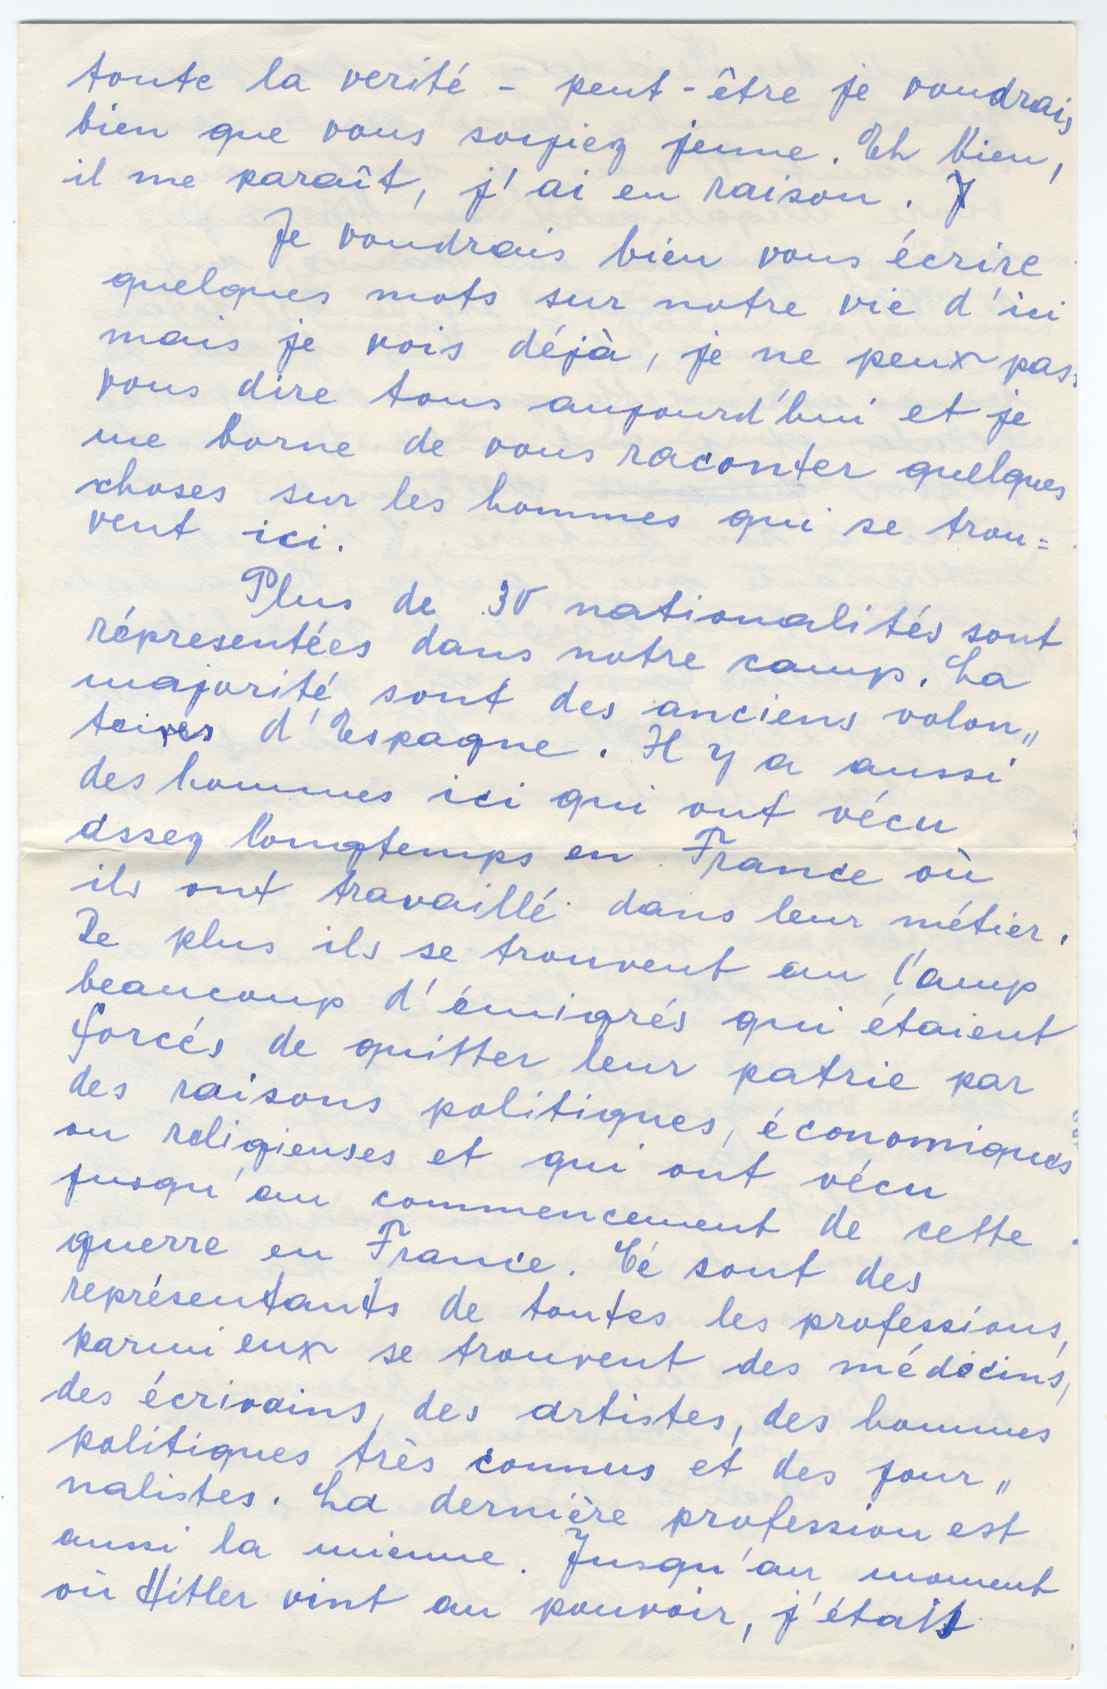 toute la verité - peut-être je voudrais
bien que vous soyiez jeune. Eh bien,
il me paraît, j'ai eu raison. J
Je voudrais bien vous écrire
quelques mots sur notre vie d'ici
mais je vois déjà, je ne peux pas
vous dire tous aujourd'hui et je
me borne de vous raconter quelques
choses sur les hommes qui se trou=
vent ici.
Plus de 30 nationalités sont
répresentées dans notre camp. La
majorité sont des anciens volon„
taires d'Espagne. Il y a aussi
des hommes ici qui ont vécu
assez longtemps en France où
ils ont travaillé dans leur métier.
De plus ils se trouvent au Camp
beaucoup d'émigrés qui étaient
forcés de quitter leur patrie par
des raisons politiques, économiques
ou religieuses et qui ont vécu
jusqu'au commencement de cette
guerre en France. Cé sont des
représentants de toutes les professions,
parmi eux se trouvent des médicins,
des écrivains, des artistes, des hommes
politiques très connus et des jour„
nalistes. La dernière profession est
aussi la mienne. Jusqu'au moment
où Hitler vint au pouvoir, j'étais